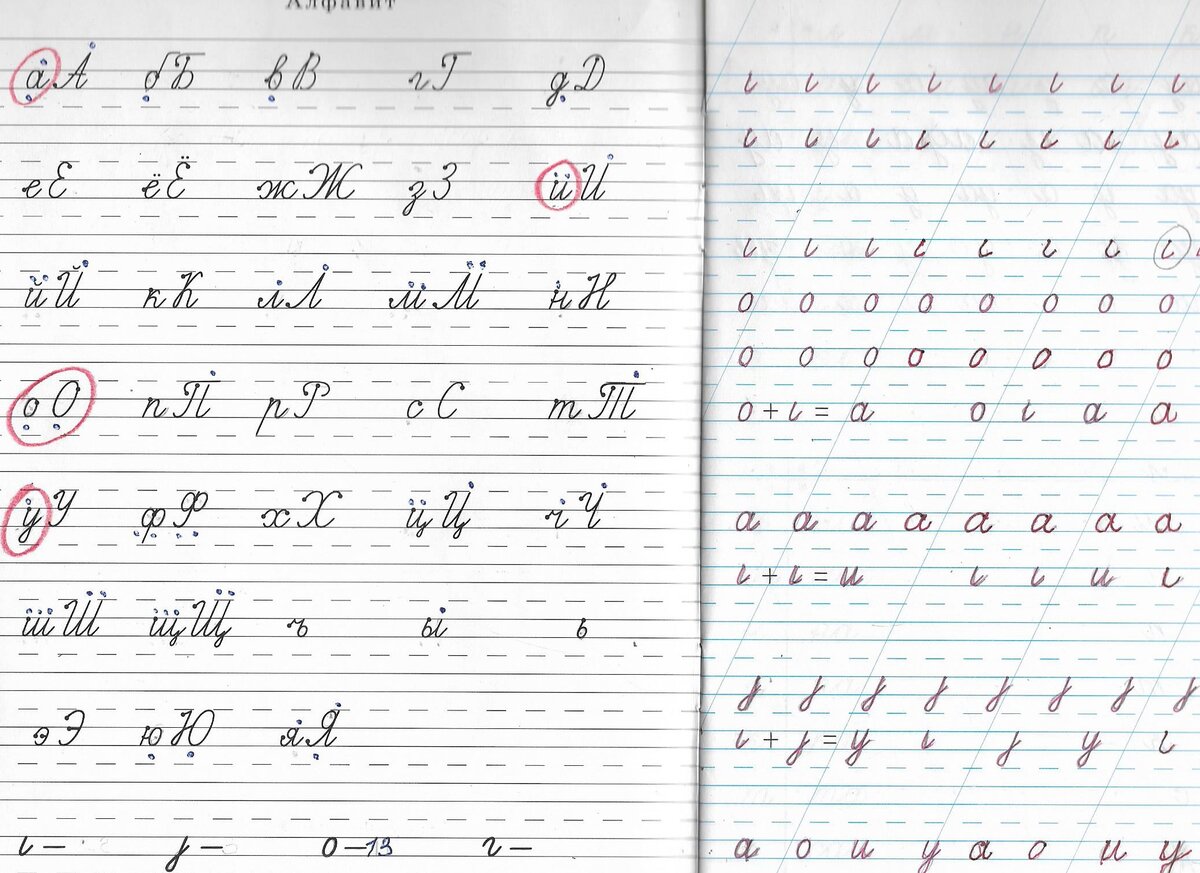 Алфавит
а А б Б в В г Г д D
е Е ё Ё ж Ж з З и И
й Й к К л Л м М н Н
о О п П р Р с С т Т
у У ф Ф х Х ц Ц ч Ч
ш Ш щ Щ ъ ы ь
э Э ю Ю я Я
ι – ȷ – о – 13 г –
ι ι ι ι ι ι ι ι
ι ι ι ι ι ι ι ι
ι ι ι ι ι ι ι ι
о о о о о о о о
о о о о о о о о
о + ι = а о ι а а
а а а а а а а а
ι + ι = и ι ι и ι
ȷ ȷ ȷ ȷ ȷ ȷ ȷ ȷ
ι + ȷ = у ι ȷ у ι
а о и у а о и у